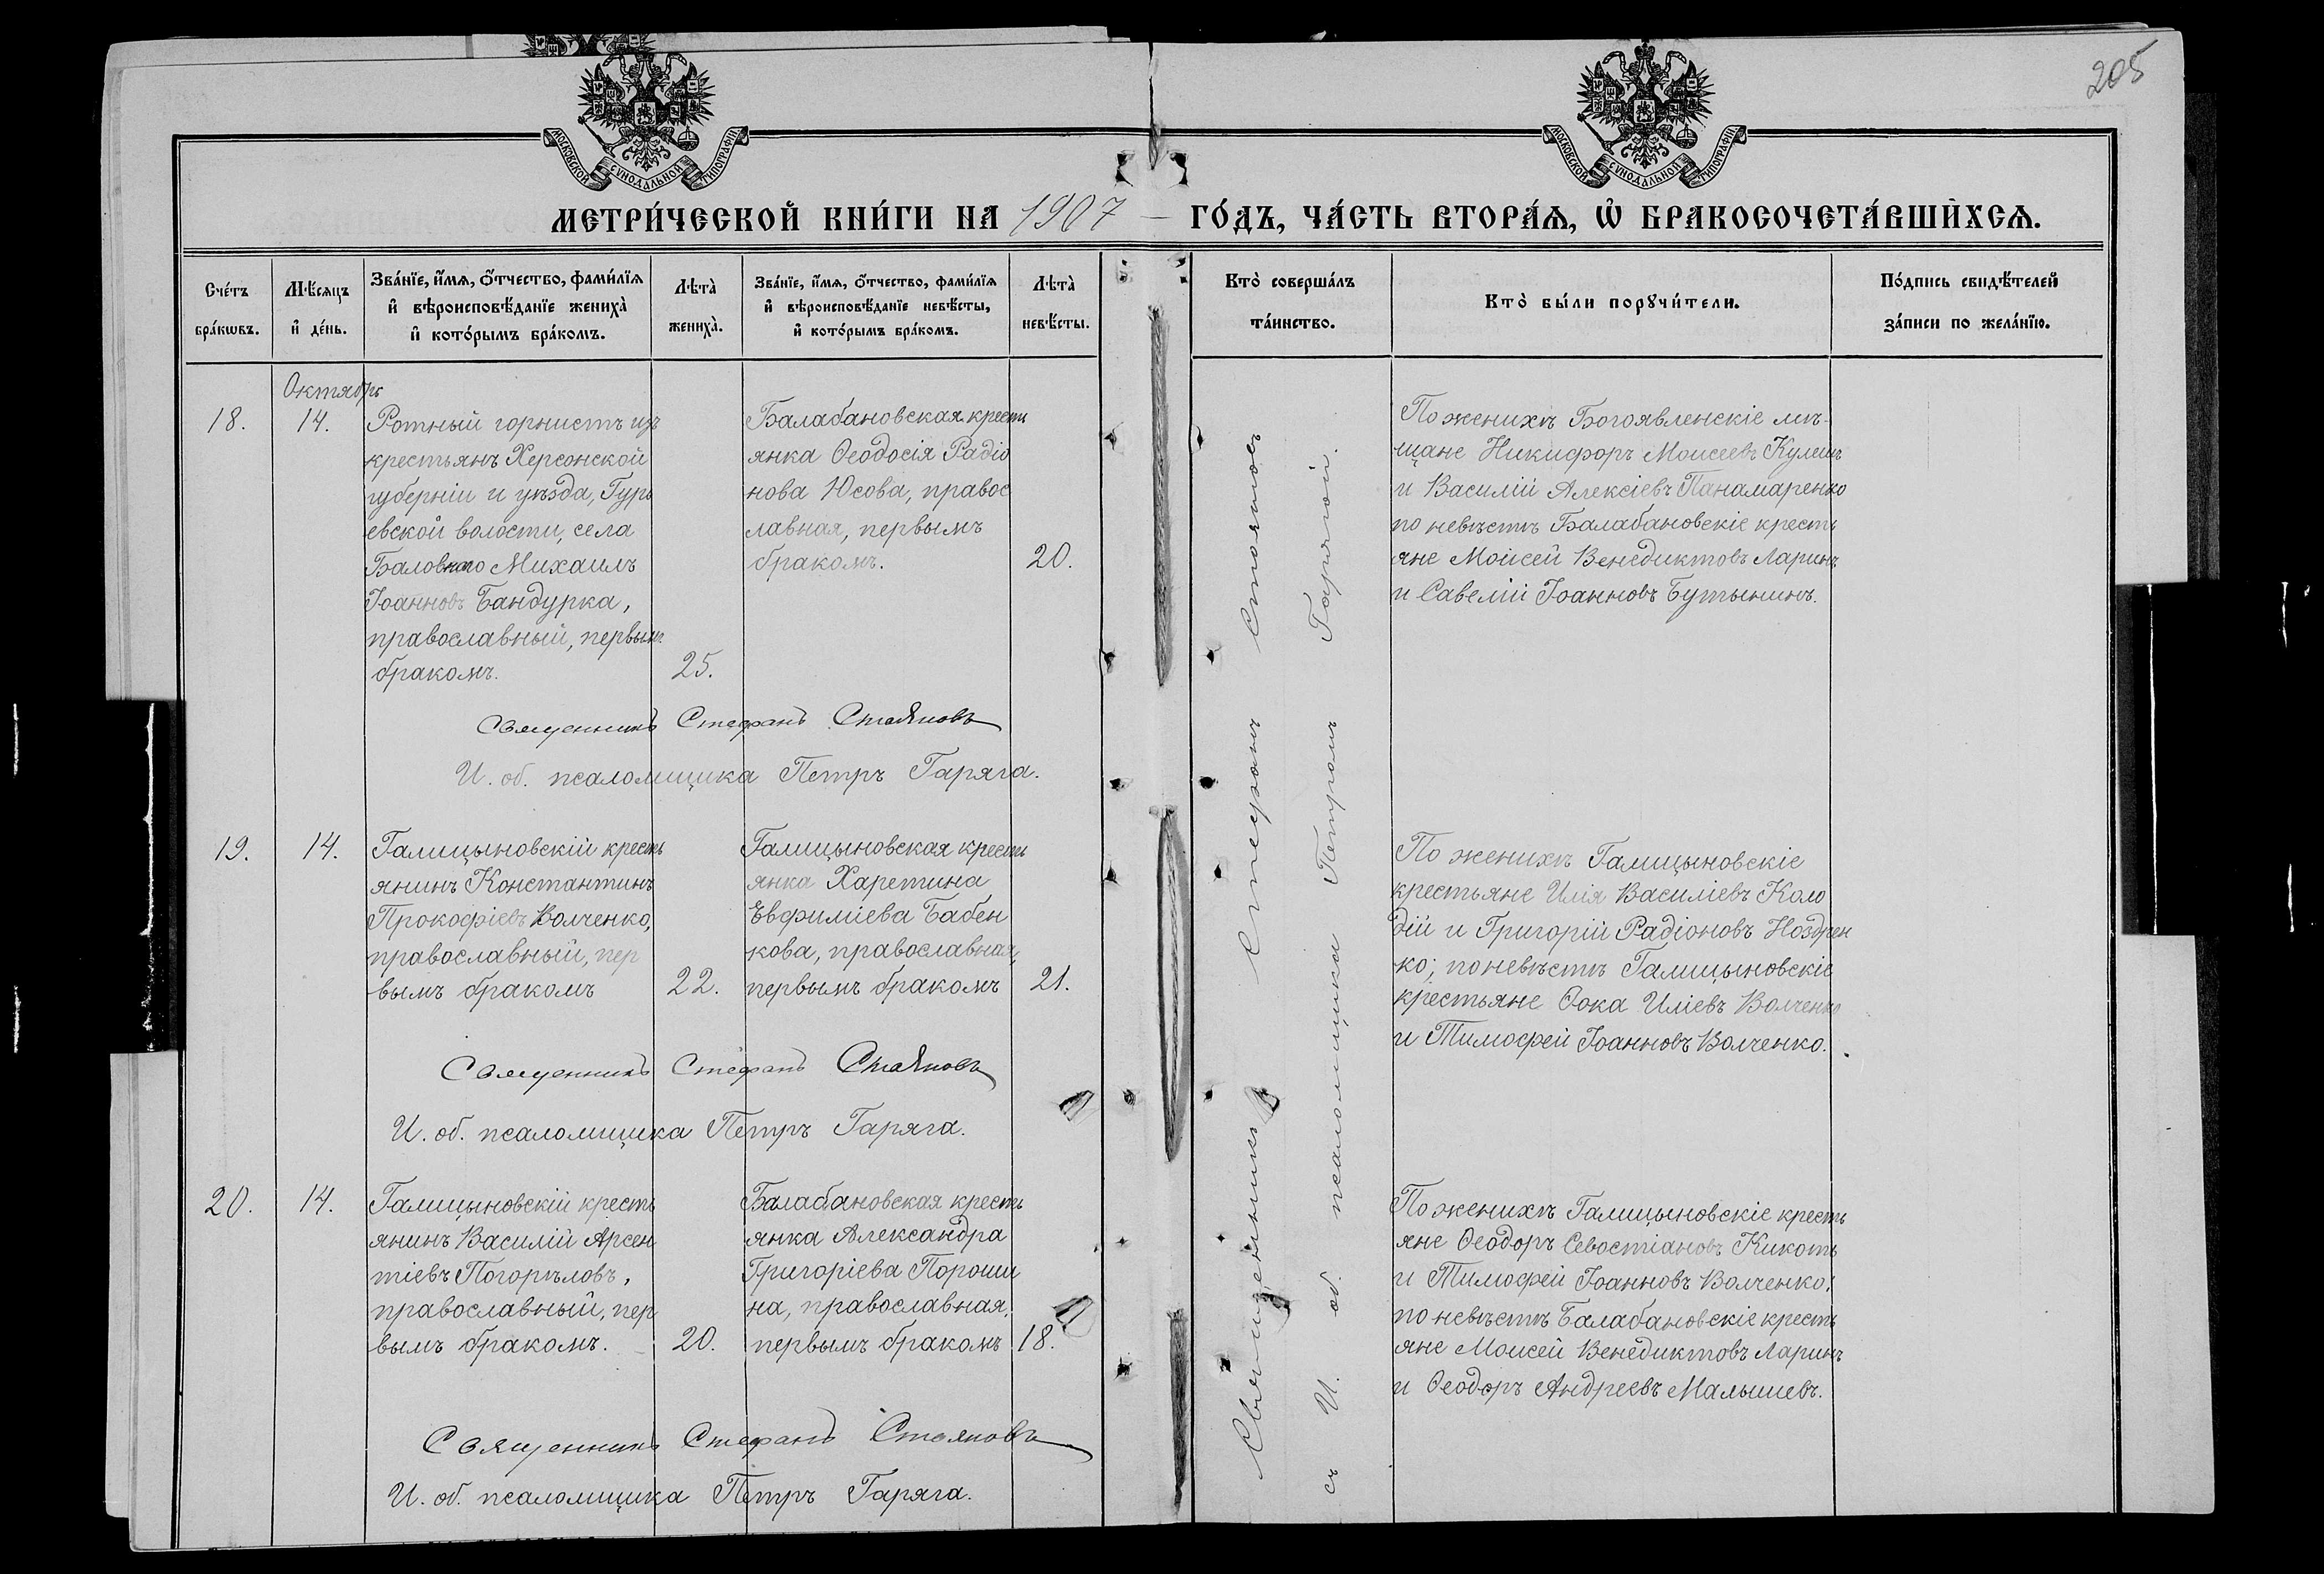 205
МОСКОВСКОЙ СѴНОДАЛЬНОЙ ТИПОГРАФІИ
МОСКОВСКОЙ СѴНОДАЛЬНОЙ ТИПОГРАФІИ
МЕТРИ́ЧЕСКОЙ КНИ́ГИ НА 1907 ГО́ДЪ, ЧА́СТЬ ВТОРА́Ѧ, Ѡ БРАКОСОЧЕТА́ВШИХСѦ.
Сче́тъ
бра́кѡвъ.
Мѣ́сяцъ
и де́нь.
Зва́нїе, и́мѧ, ѻ҆́тчество, фами́лїѧ
и҆ вѣроисповѣ́данїе жениха̀
и҆ кото́рымъ бра́комъ.
Лѣта̀
жениха̀.
Зва́нїе, и́мѧ, ѻ҆́тчество, фами́лїѧ
и҆ вѣроисповѣ́данїе невѣ́сты,
и҆ кото́рымъ бра́комъ.
Лѣта̀
невѣ́сты.
Кто̀ соверша́лъ
та́инство.
Кто̀ бы́ли порꙋчи́тели.
По́дпись свидѣ́телей
за́писи по жела́нїю.
Октябрь
18.
14.
Ротный горнистъ изъ
крестьянъ Херсонской
губерніи и уѣзда, Гурь
евской волости, села
Баловнаго Михаилъ
Іоанновъ Бандурка,
православный, первымъ
бракомъ.
25.
Балабановская кресть
янка Ѳеодосія Радіо
нова Юсова, правос
лавная, первымъ
бракомъ.
20.
По женихѣ Богоявленскіе мѣ-
щане Никифоръ Моисеевъ Кулиш
и Василій Алексіевъ Панамаренко
по невѣстѣ Балабановскіе кресть
яне Моисей Венедиктовъ Ларинъ
и Савелій Іоанновъ Бутынинъ.
Священникъ Стефанъ Стояновъ
И. об. псаломщика Петръ Гаряга.
19.
14.
Галицыновскій кресть
янинъ Константинъ
Прокофіевъ Волченко,
православный, пер
вымъ бракомъ
22.
Галицыновская кресть
янка Харетина
Евфиміева Бабен
кова, православная,
первымъ бракомъ
21.
По женихѣ Галицыновскіе
крестьяне Илія Василіевъ Коло
дій и Григорій Радіоновъ Ноздрен
ко; по невѣстѣ Галицыновскіе
крестьяне Ѳока Иліевъ Волченко
и Тимофей Іоанновъ Волченко.
Священникъ Стефанъ Стояновъ
И. об. псаломщика Петръ Гаряга.
20.
14.
Галицыновскій кресть
янинъ Василій Арсен
тіевъ Погорѣловъ,
православный, пер
вымъ бракомъ.
20.
Балабановская кресть
янка Александра
Григоріева Пороши
на, православная,
первымъ бракомъ
18.
По женихѣ Галицыновскіе кресть
яне Ѳеодоръ Севостіановъ Кикоть
и Тимофей Іоанновъ Волченко;
по невѣстѣ Балабановскіе кресть
яне Моисей Венедиктовъ Ларинъ
и Ѳеодоръ Андреевъ Малышевъ.
Священникъ Стефанъ Стояновъ
И. об. псаломщика Петръ Гаряга.
Священникъ Стефанъ Стояновъ
съ И. об. псаломщика Петромъ Гарягой.